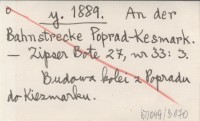 y. 1889. An der
Bahnstrecke Poprad-Kesmark.
— Zipser Bote 27, nr 33: 3.
Budowa kolei z Popradu
do Kiezmarku.